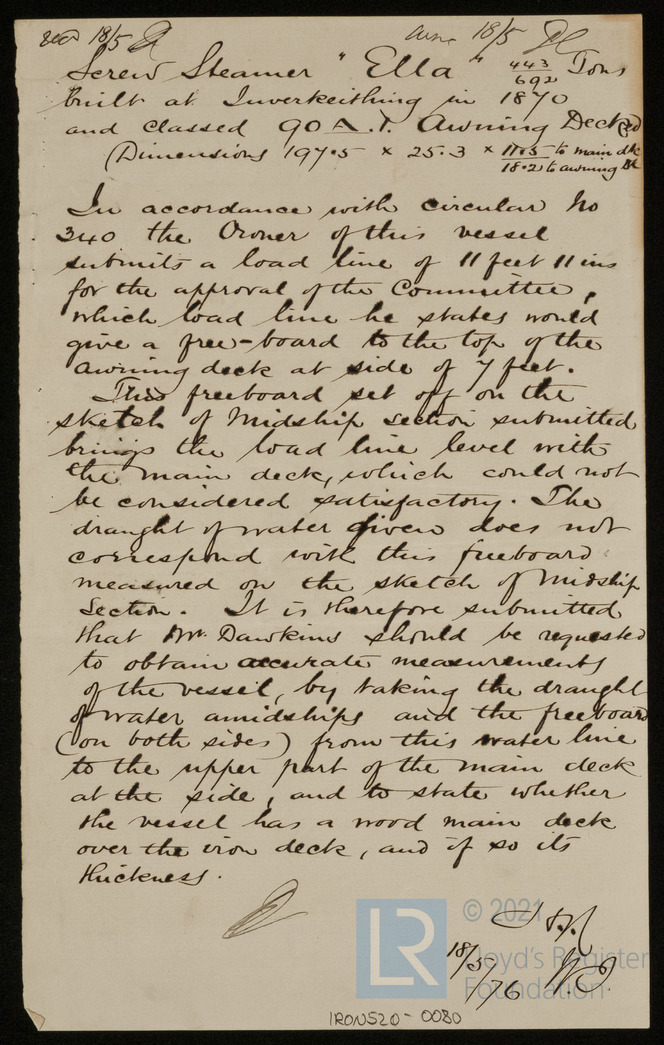 18/5 18/5
Screw Steamer "Ella" 443/692 Tons
built at Inverkeithing in 1870
and classed 90 A.1. Awning Decked
(Dimensions 197.5 × 25.3 × 11.5 to main dk
18.2 to awning Dk
In accordance with circular No
340 the Owner of this vessel
submits a load line of 11 feet 11 ins
for the approval of the Committee,
which load line he states would
give a free-board to the top of the
awning deck at side of 7 feet.
This freeboard set off on the
sketch of Midship section submitted
brings the load line level with
the main deck, which could not
be considered satisfactory. The
draught of water given does not
correspond with this freeboard
measured on the sketch of Midship
Section. It is therefore submitted
that Mr. Dawkins should be requested
to obtain accurate measurements
of the vessel, by taking the draught
of water amidships and the freeboard
(on both sides) from this water line
to the upper part of the main deck
at the side, and to state whether
the vessel has a wood main deck
over the iron deck, and if so its
thickness.
LR © 2021
Lloyd's Register
Foundation
18/5/76
IRONS20-0080